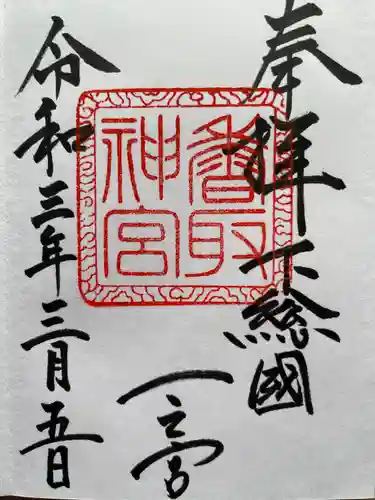 奉拝 下総國
一之宮
香取神宮
令和三年三月五日